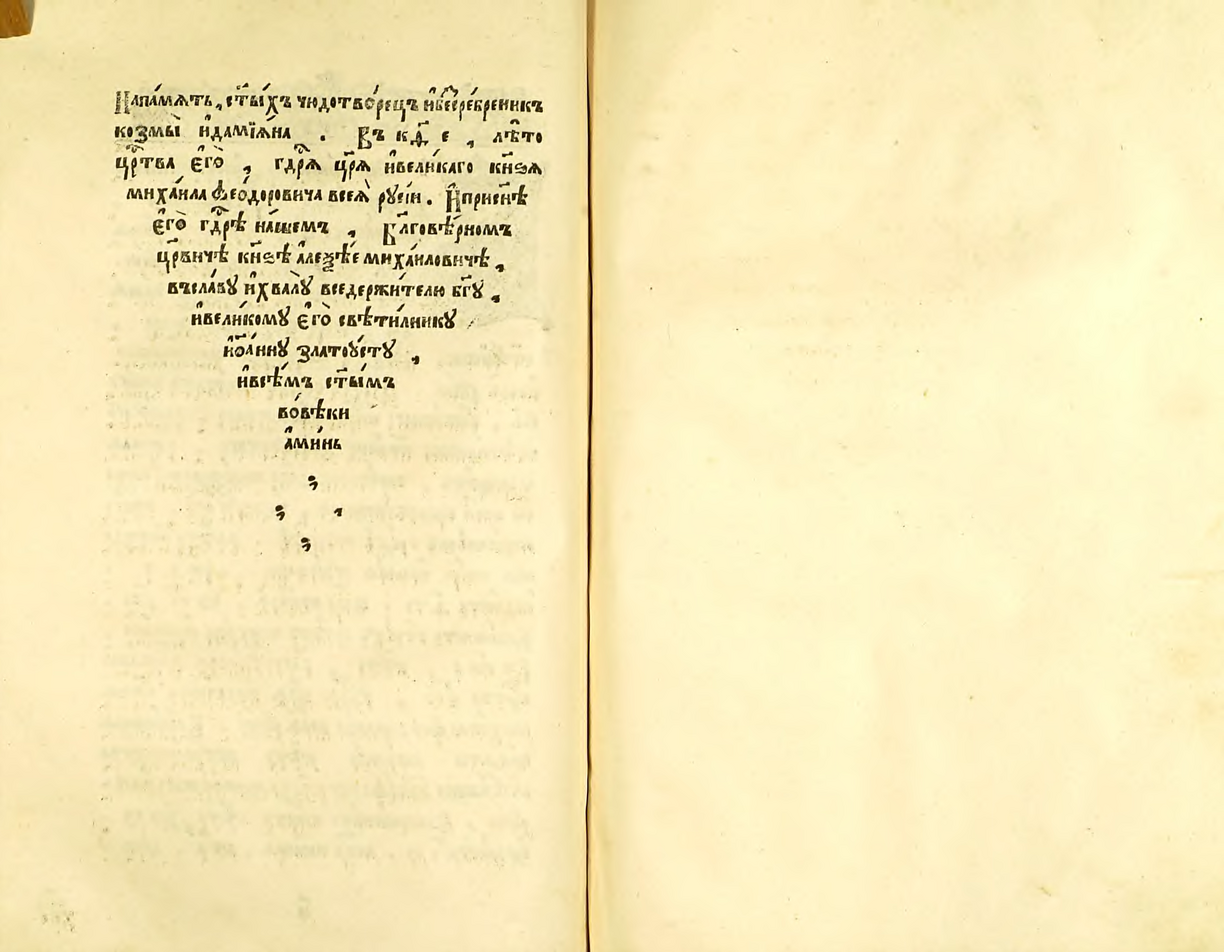 Напа́мѧть, ст҃ы́хъ чюдотво́рецъ и҆бесре́бреникъ
козмы̀ и҆дамїѧ́на . Въ к҃д е , лѣ́то
цр҇тва е҆гѡ̀ , гд҇рѧ цр҃ѧ̀ и҆вели́каго кн҃ѕѧ
миха́ила ѳео́доровича всеѧ̀ рꙋсі́и . И҆присн҃ѣ
е҆го̀ гд҇рѣ на́шемъ , Бл҃говѣ́рномъ
цр҃вичѣ кн҃ѕѣ а҆леѯѣ́е миха́иловичѣ ,
въсла́вꙋ и҆хвалꙋ̀ вседержи́телю бг҃ꙋ ,
и҆вели́комꙋ е҆го̀ свѣти́лникꙋ
і҆ѡа́ннꙋ златоꙋ́стꙋ ,
и҆всѣ́мъ ст҃ы́мъ
вовѣ́ки
а҆ми́нь